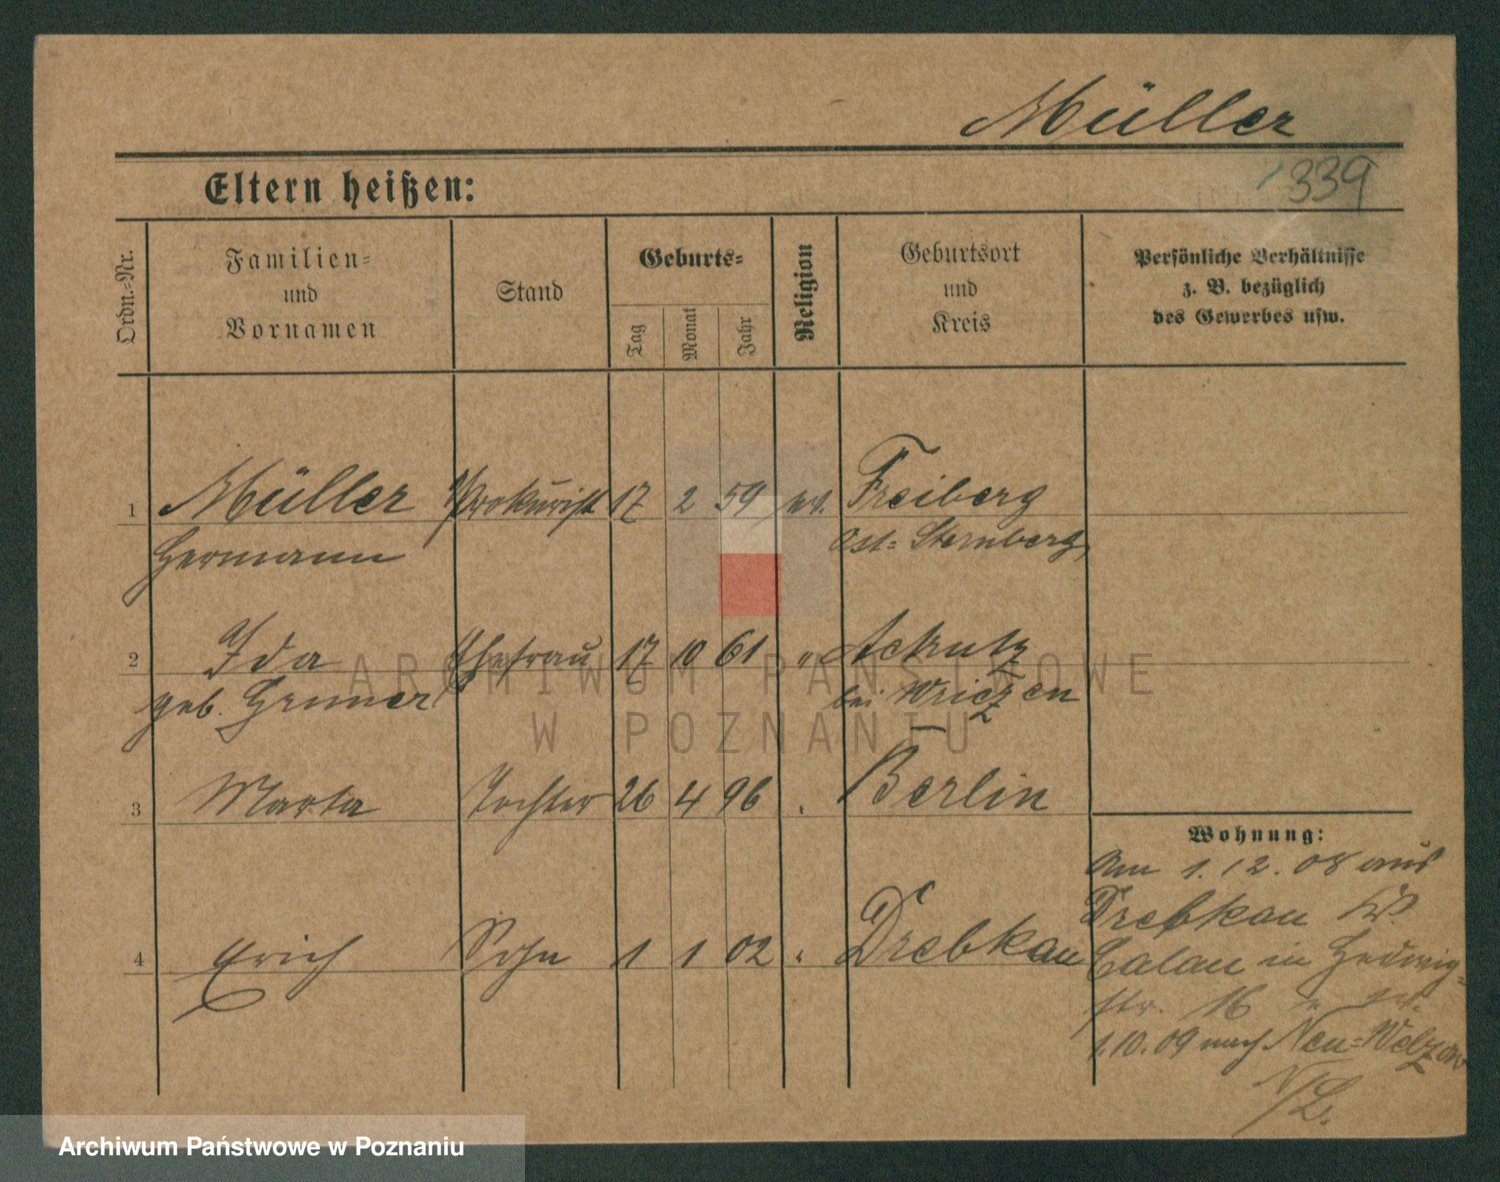 Müller
339
Eltern heißen:
Ordn.-Nr.
Familien-
und
Vornamen
Stand
Geburts-
Tag
Monat
Jahr
Religion
Geburtsort
und
Kreis
Persönliche Verhältnisse
z. B. bezüglich
des Gewerbes usw.
1 Müller Prokurist 17 2 59 ev. Freiberg
Hermann Ost-Sternberg
2 Ida Ehefrau 17 10 61 "
geb. bei Wriezen
3 Marta Tochter 26 4 96 " Berlin
Wohnung:
Am 1.12.08 aus
Drebkau Kr.
4 Erich Sohn 1 1 02 " Drebkau
Calau in Hedwig-
str. 16
1.10.09 nach Neu-Welzow
N/L.
ARCHIWUM PAŃSTWOWE
W POZNANIU
Archiwum Państwowe w Poznaniu